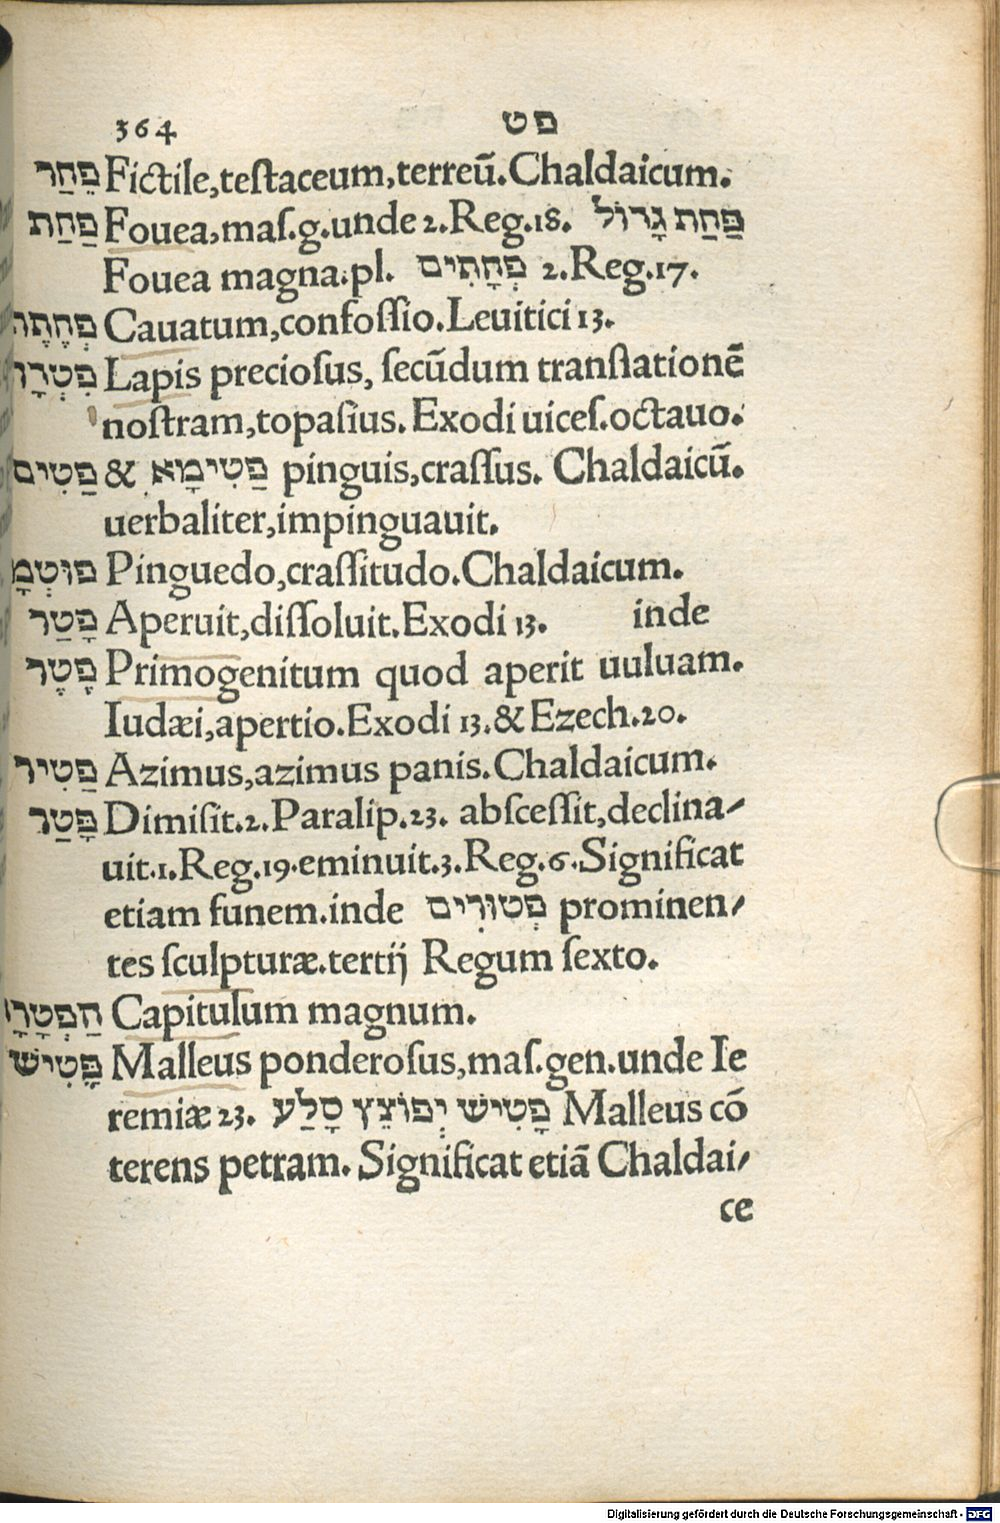 364 פט
פֶּחַר Fictile,testaceum,terreū.Chaldaicum.
פַּחַת Fouea,maſ.g.unde 2.Reg.18. פַּחַת גָרוֹל
Fouea magna.pl. פְּחָתִים 2.Reg.17.
פְּחֶתֶה Cauatum,confoſſio.Leuitici 13.
Lapis precioſus, ſecūdum tranſlationē
noſtram,topaſius. Exodi uiceſ.octauo.
פַּטִים & פַּטִימָא pinguis,craſſus. Chaldaicū.
uerbaliter,impinguauit.
Pinguedo,craſſitudo.Chaldaicum.
פָּטַר Aperuit,diſſoluit.Exodi 13. inde
פֶּטֶר Primogenitum quod aperit uuluam.
Iudæi,apertio.Exodi 13.& Ezech.20.
פַּטִיר Azimus,azimus panis.Chaldaicum.
פָּטַר Dimiſit.2.Paralip.23. abſceſſit,declina/
uit.1.Reg.19.eminuit.3.Reg.6.Significat
etiam funem.inde פְּטוּרִים prominen/
tes ſculpturæ.tertij Regum ſexto.
Capitulum magnum.
פַּטִישׁ Malleus ponderoſus,maſ.gen.unde Ie
remiæ 23. פָּטִישׁ יְפוֹצֵץ סָלַע Malleus cō
terens petram. Significat etiā Chaldai/
ce
Digitalisierung gefördert durch die Deutsche Forschungsgemeinschaft - DFG